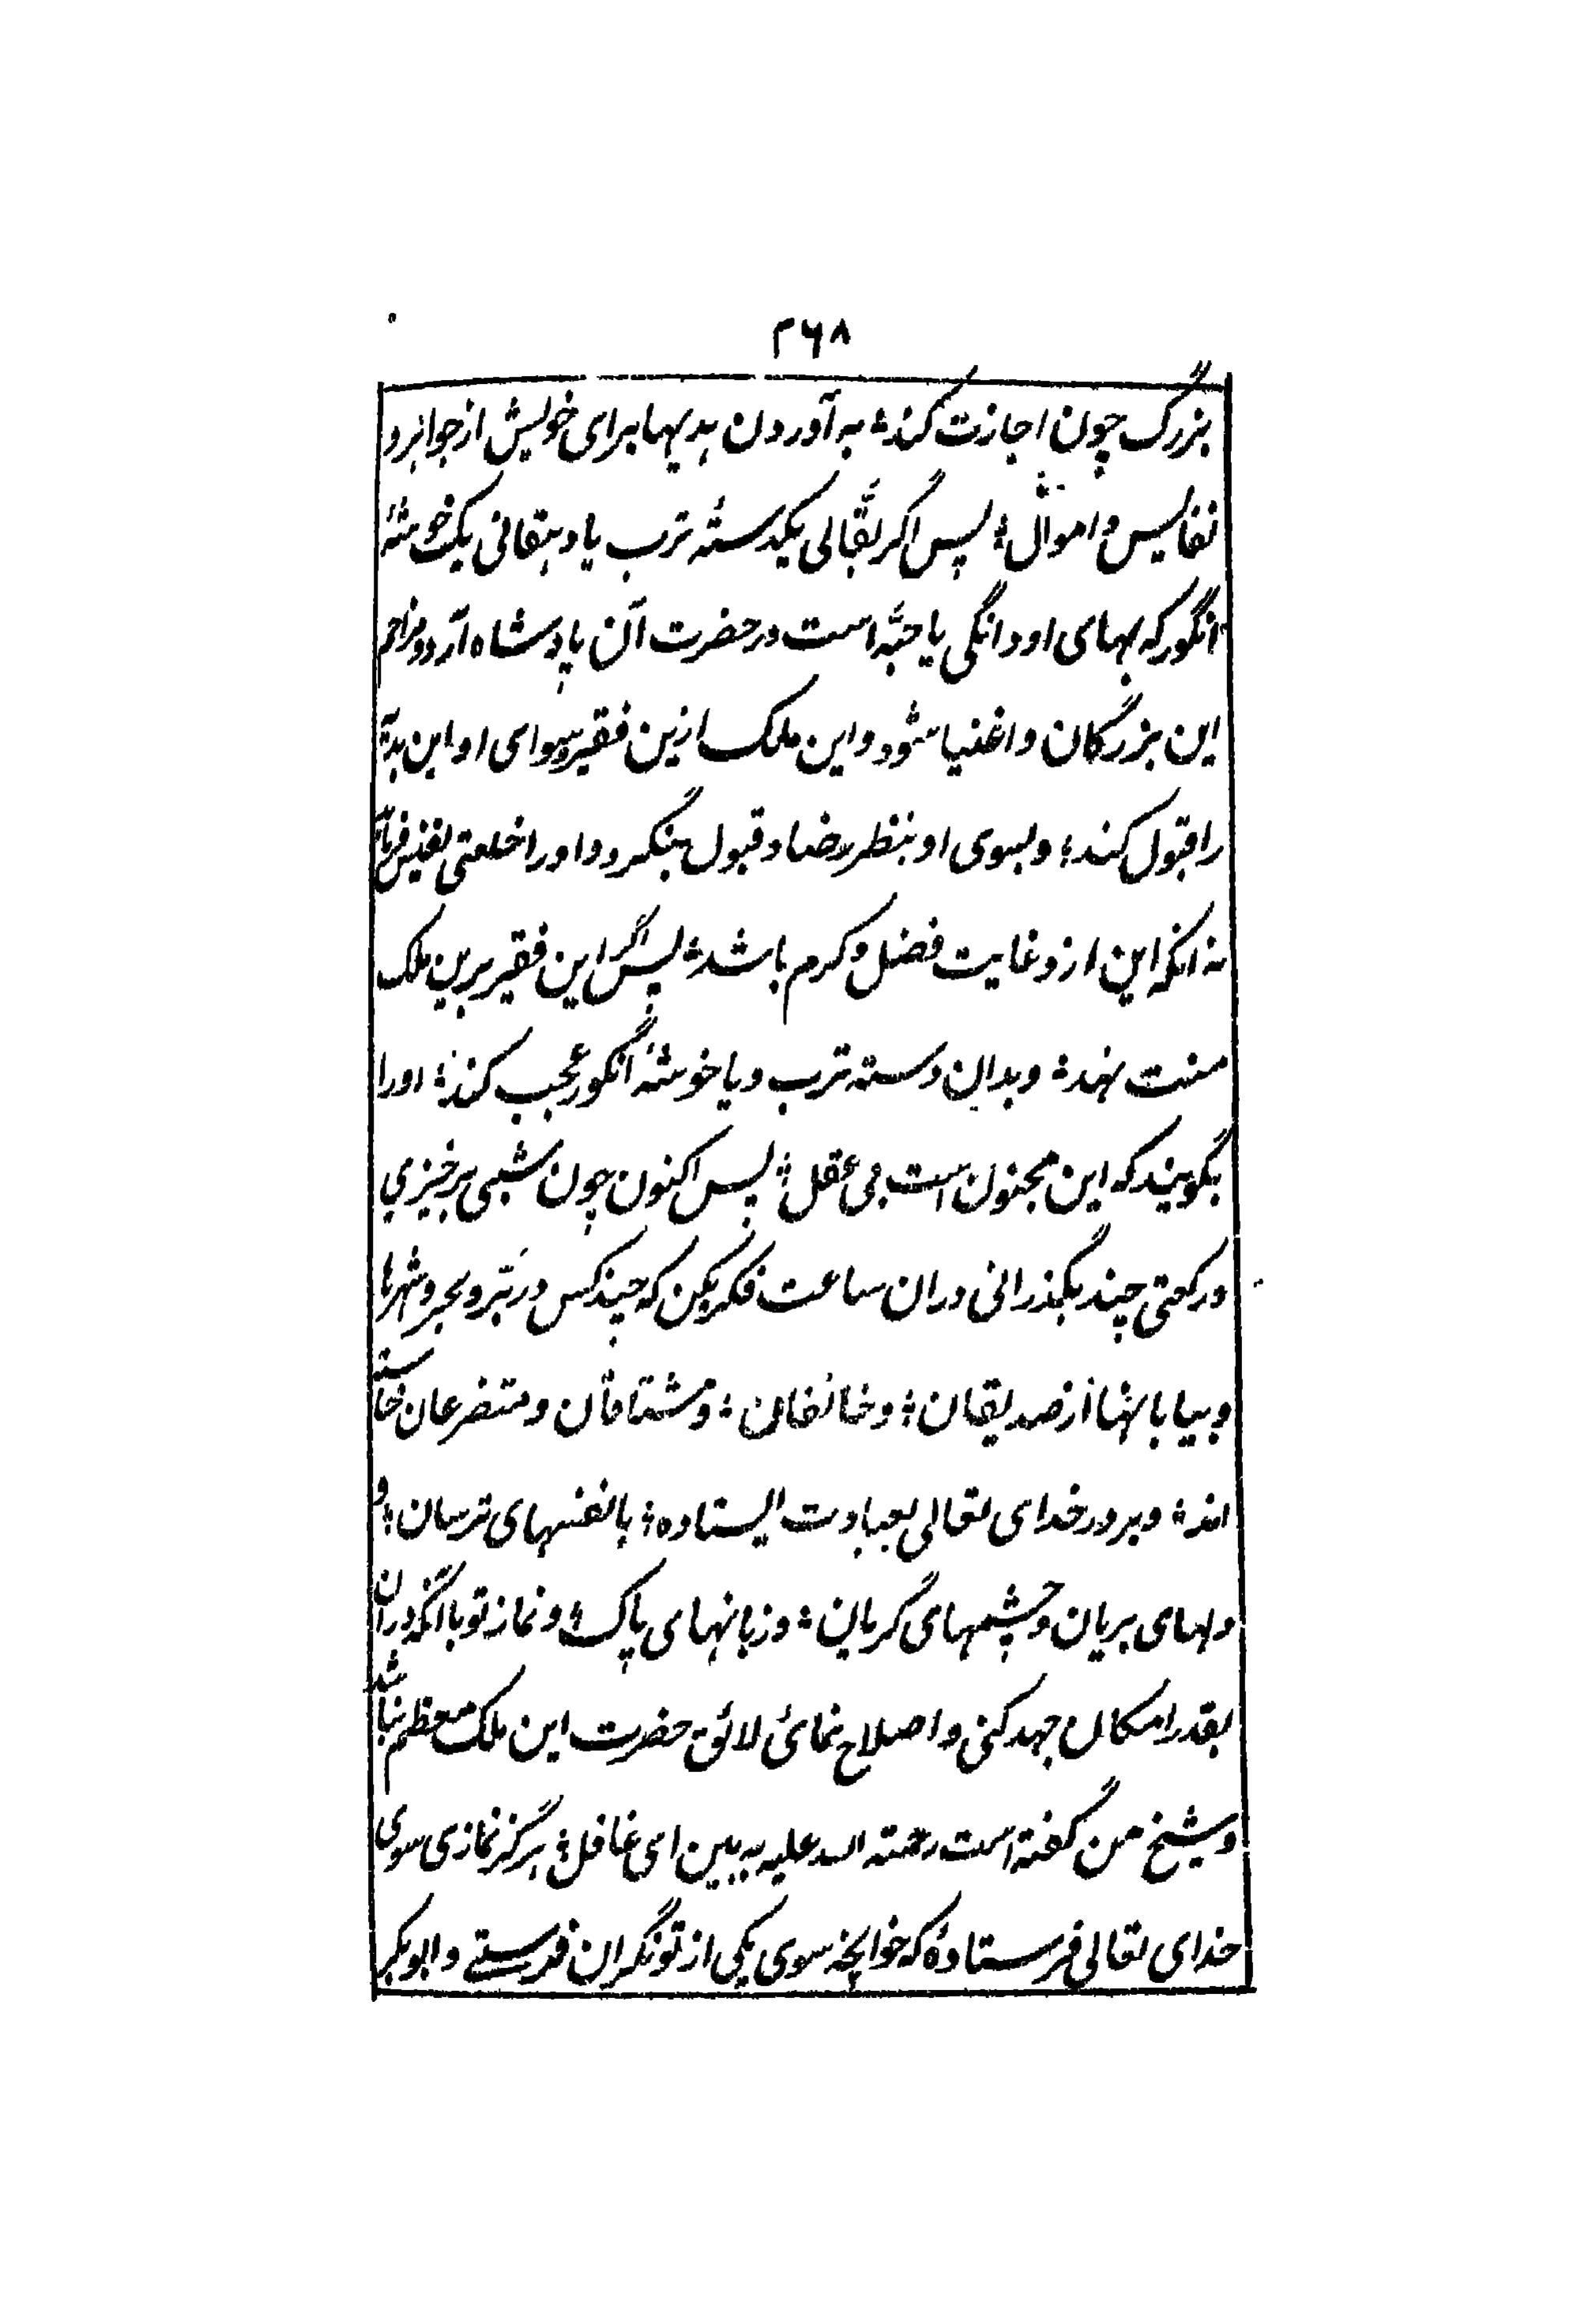 ۲۶۸
بزرگ چون اجازت کند؛ به آوردن هدیهها برای خویش از جواهر و
نفایس و اموال؛ پس اگر بقّالی یکدستهٔ ترب یا دهقانی یک خوشهٔ
انگور که بهای او دانگی یا حبّه است در حضرت آن پادشاه آرد و مزاحم
این بزرگان و اغنیا شود و این ملک ازین فقیر و سوای او این هدیهٔ
را قبول کند؛ و بسوی او بنظر رضا و قبول بنگرد و او را خلعتی نفیس فرماید
نه آنکه این ازو غایت فضل و کرم باشد؛ پس اگر این فقیر برین ملک
منت نهد؛ و بدان دسته ترب و یا خوشهٔ انگور عجب کند؛ او را
بگویند که این مجنون است بی عقل؛ پس اکنون چون شبی برخیزی
و رکعتی چند بگذرانی دران ساعت فکر بکن که چند کس در بَرّ و بحر و شهرها
و بیابانها از صدیقان؛ و خائفان؛ و مشتاقان و متضرعان خاسته
اند؛ و بر در خدای تعالی بعبادت ایستاده؛ بانفسهای ترسان؛ و
دلهای بریان و چشمهای گریان؛ و زبانهای پاک؛ و نماز تو با آنکه دران
بقدر امکان جهد کنی و اصلاح نمائی لائق حضرت این ملک معظم نباشد
و شیخ من گفته است رحمته الله علیه به بین ای غافل؛ هرگز نمازی سوی
خدای تعالی فرستادهٔ که خوانچه سوی یکی از تونگران فرستے و ابوبکر